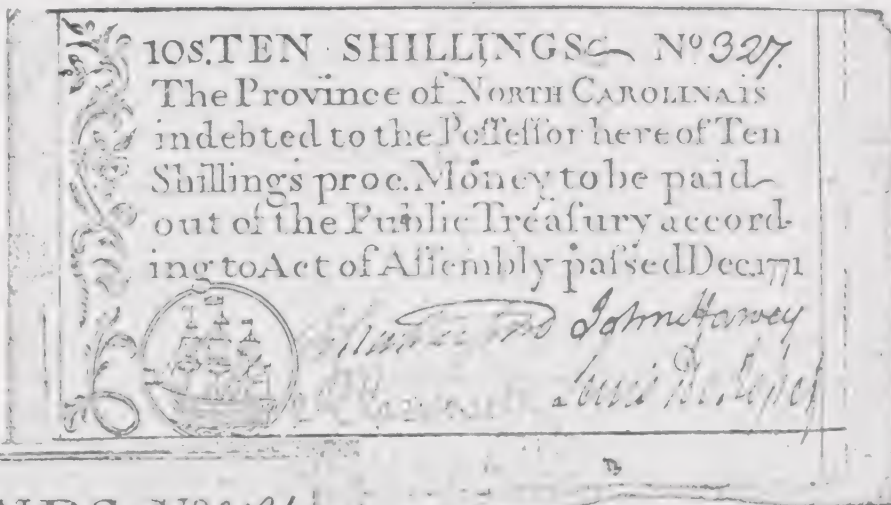 10S. TEN SHILLINGS Nº 327.
The Province of NORTH CAROLINA is
indebted to the Poſſeſſor here of Ten
Shillings proc. Money to be paid
out of the Public Treaſury accord-
ing to Act of Aſſembly paſsed Dec. 1771
John Harvey
Lewis
Nº